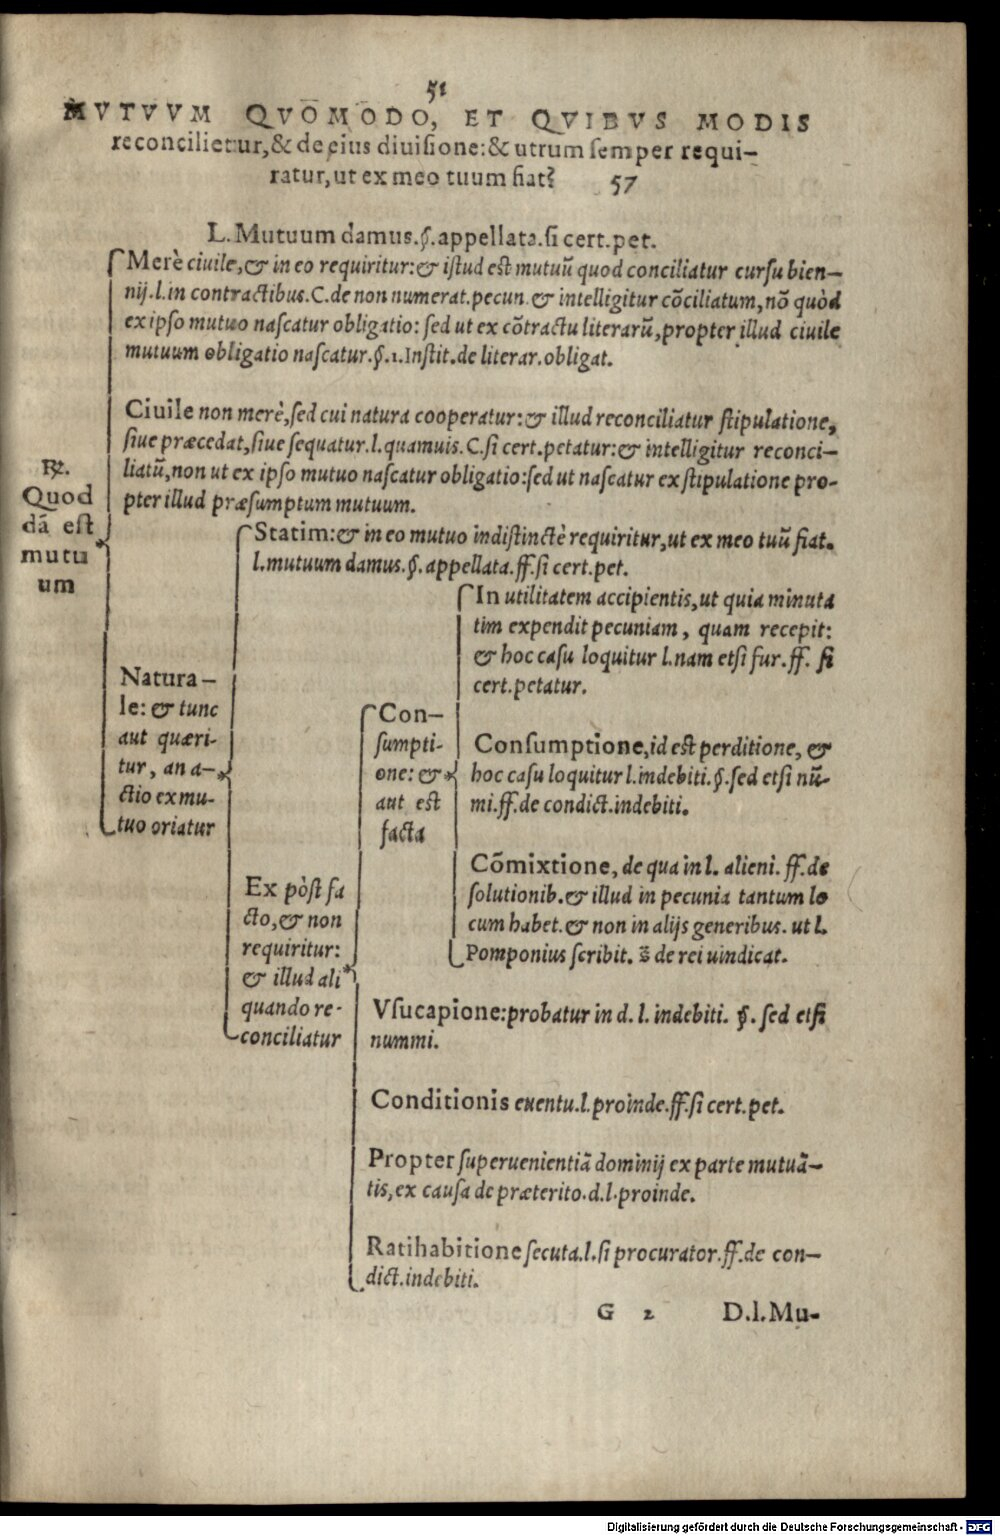 51
MVTVVM QVOMODO, ET QVIBVS MODIS
reconcilietur,& de eius diuisione:& utrum semper requi-
ratur,ut ex meo tuum fiat? 57
L.Mutuum damus.§.appellata.si cert.pet.
Merè ciuile,& in eo requiritur:& istud est mutuũ quod conciliatur cursu bien-
nij.l.in contractibus.C.de non numerat.pecun.& intelligitur cõciliatum,nõ quòd
ex ipso mutuo nascatur obligatio: sed ut ex cõtractu literarũ,propter illud ciuile
mutuum obligatio nascatur.§.1.Instit.de literar.obligat.
Ciuile non merè,sed cui natura cooperatur:& illud reconciliatur stipulatione,
siue præcedat,siue sequatur.l.quamuis.C.si cert.petatur:& intelligitur reconci-
liatũ,non ut ex ipso mutuo nascatur obligatio:sed ut nascatur ex stipulatione pro-
pter illud præsumptum mutuum.
℞.
Quod
dã est
mutu
um
Statim:& in eo mutuo indistinctè requiritur,ut ex meo tuũ fiat.
l.mutuum damus.§.appellata.ff.si cert.pet.
Natura-
le: & tunc
aut quæri-
tur, an a-
ctio ex mu-
tuo oriatur
Ex pòst fa
cto,& non
requiritur:
& illud ali
quando re-
conciliatur
Con-
sumpti-
one: &
aut est
facta
In utilitatem accipientis,ut quia minuta
tim expendit pecuniam, quam recepit:
& hoc casu loquitur l.nam etsi fur.ff. si
cert.petatur.
Consumptione,id est perditione, &
hoc casu loquitur l.indebiti.§.sed etsi nũ-
mi.ff.de condict.indebiti.
Cõmixtione, de qua in l. alieni. ff.de
solutionib.& illud in pecunia tantum lo
cum habet.& non in alijs generibus. ut l.
Pomponius scribit. de rei uindicat.
Vsucapione:probatur in d. l. indebiti. §. sed etsi
nummi.
Conditionis euentu.l.proinde.ff.si cert.pet.
Propter superuenientiã dominij ex parte mutuã-
tis,ex causa de præterito.d.l.proinde.
Ratihabitione secuta.l.si procurator.ff.de con-
dict.indebiti.
G 2 D.l.Mu-
Digitalisierung gefördert durch die Deutsche Forschungsgemeinschaft - DFG